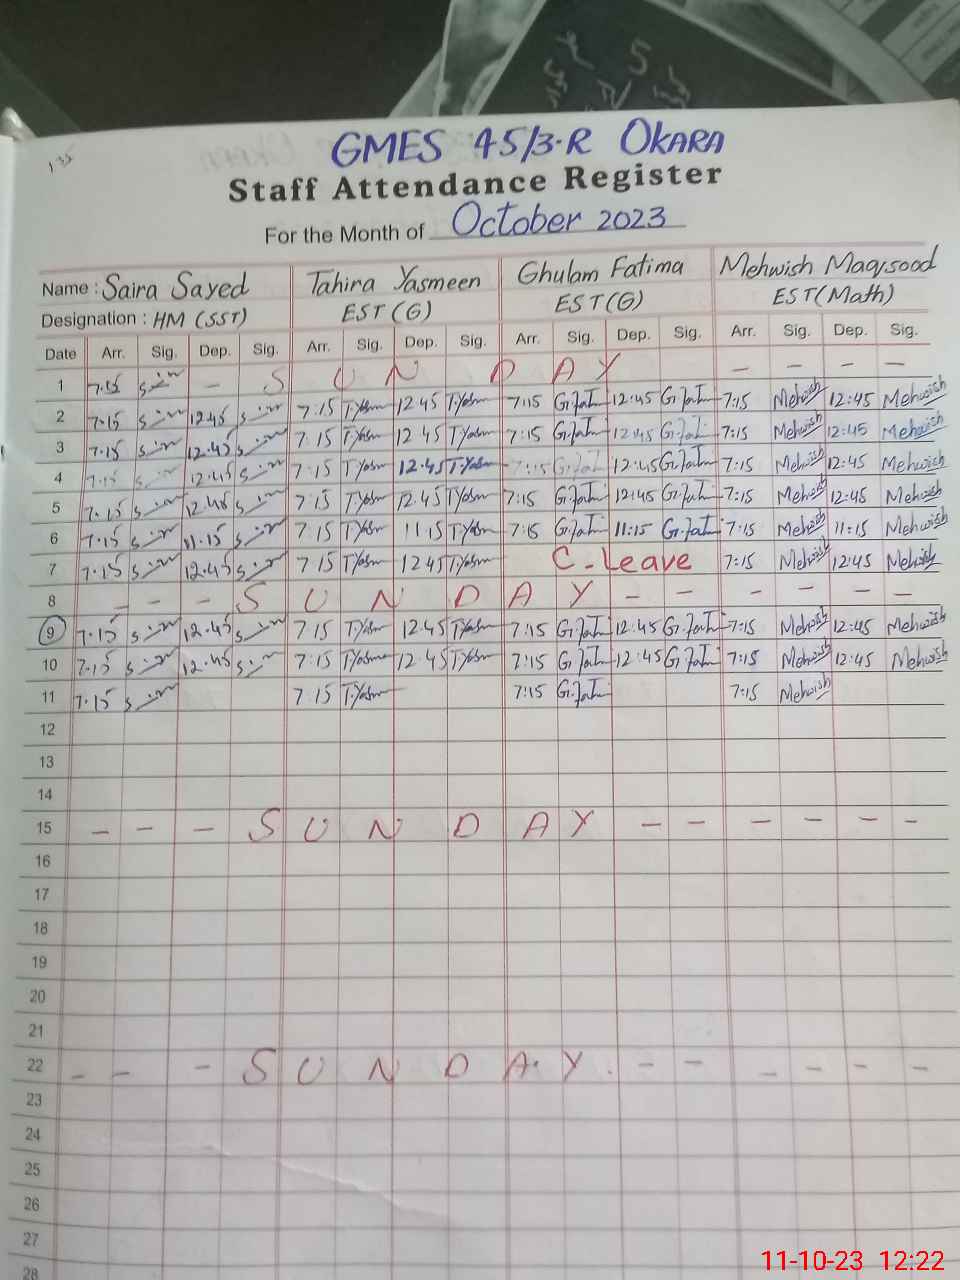 135
GMES 45/3-R OKARA
Staff Attendance Register
For the Month of October 2023
Name : Saira Sayed Tahira Yasmeen Ghulam Fatima Mehwish Maqsood
Designation : HM (SST) EST (G) EST (G) EST (Math)
Date Arr. Sig. Dep. Sig. Arr. Sig. Dep. Sig. Arr. Sig. Dep. Sig. Arr. Sig. Dep. Sig.
1 7.15 – S U N D A Y – – – –
2 7.15 12.45 7:15 T.Yasm 12 45 T.Yasm 7:15 G.Fati 12:45 G.Fati 7:15 Mehwish 12:45 Mehwish
3 7.15 12.45 7 15 T.Yasm 12 45 T.Yasm 7:15 G.Fati 12:45 G.Fati 7:15 Mehwish 12:45 Mehwish
4 7.15 12.45 7 15 T.Yasm 12.45 T.Yasm 7:15 G.Fati 12:45 G.Fati 7:15 Mehwish 12:45 Mehwish
5 7.15 12.45 7 15 T.Yasm 12.45 T.Yasm 7:15 G.Fati 12:45 G.Fati 7:15 Mehwish 12:45 Mehwish
6 7.15 11.15 7 15 T.Yasm 11 15 T.Yasm 7:15 G.Fati 11:15 G.Fati 7:15 Mehwish 11:15 Mehwish
7 7.15 12.45 7 15 T.Yasm 12 45 T.Yasm C-Leave 7:15 Mehwish 12:45 Mehwish
8 – – – S U N D A Y – – – – – –
9 7.15 12.45 7 15 T.Yasm 12.45 T.Yasm 7:15 G.Fati 12:45 G.Fati 7:15 Mehwish 12:45 Mehwish
10 7.15 12.45 7:15 T.Yasm 12.45 T.Yasm 7:15 G.Fati 12:45 G.Fati 7:15 Mehwish 12:45 Mehwish
11 7.15 7 15 T.Yasm 7:15 G.Fati 7:15 Mehwish
12
13
14
15 – – – S U N D A Y – – – – – –
16
17
18
19
20
21
22 – – – S U N D A Y – – – – – –
23
24
25
26
27
28
11-10-23 12:22